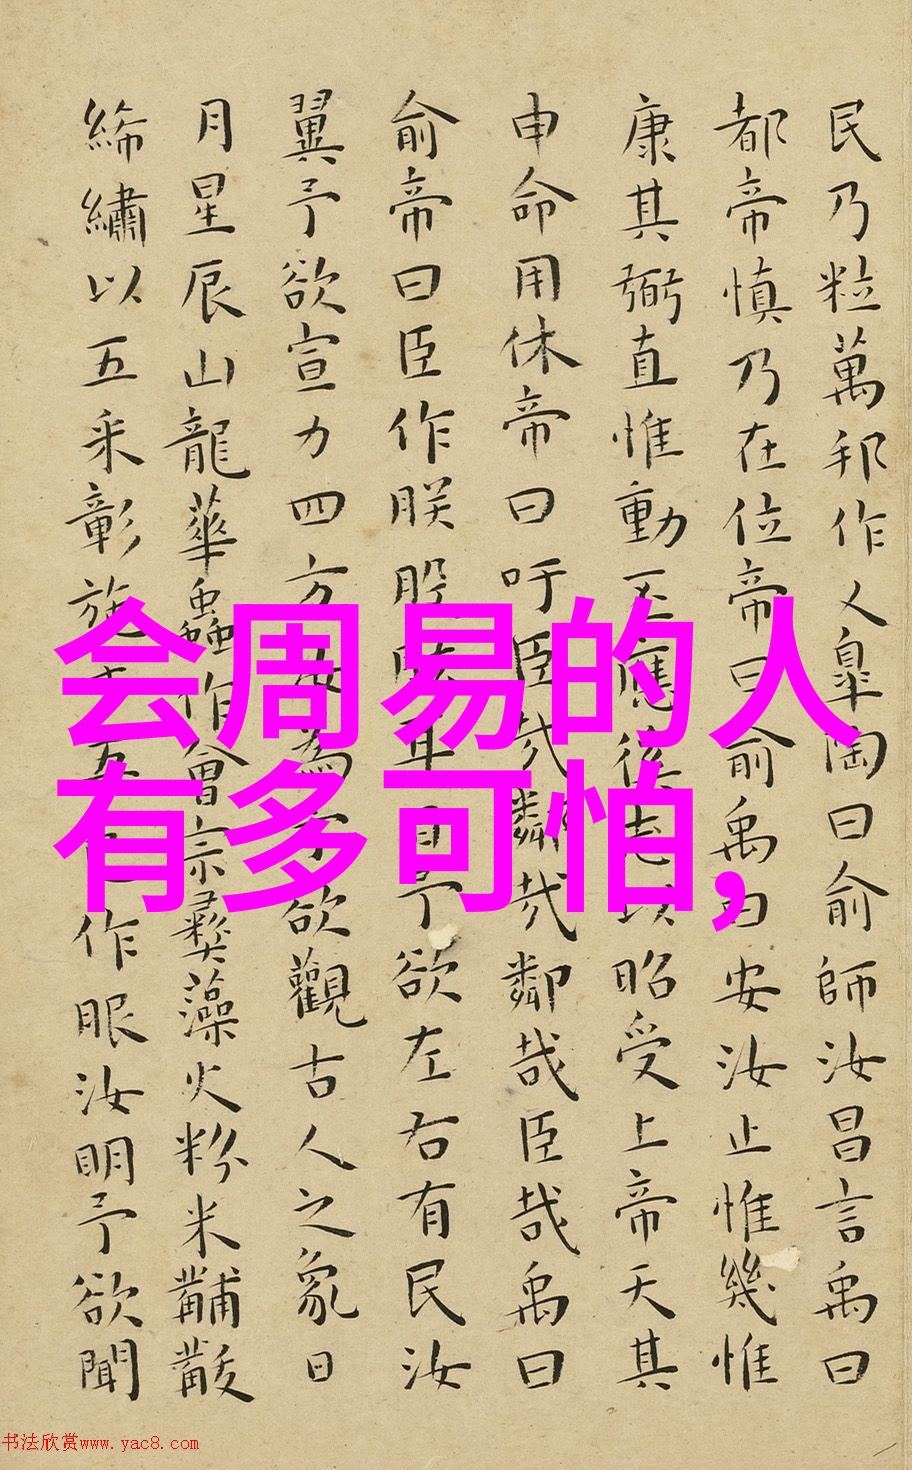 民乃粒萬邦作乂皐陶曰俞師汝昌言禹曰
都帝慎乃在位帝曰俞禹曰安汝止惟幾惟
康其弼直惟動丕應徯志以昭受上帝天其
申命用休帝曰吁臣哉鄰哉鄰哉臣哉禹曰
俞帝曰臣作朕股耳目予欲左右有民汝
翼予欲宣力四方汝為予欲觀古人之象日
月星辰山龍華蟲作會宗彝藻火粉米黼黻
絺繡以五采彰施五作服汝明予欲聞
会周易的人
有多可怕,
书法欣赏www.yac8.com